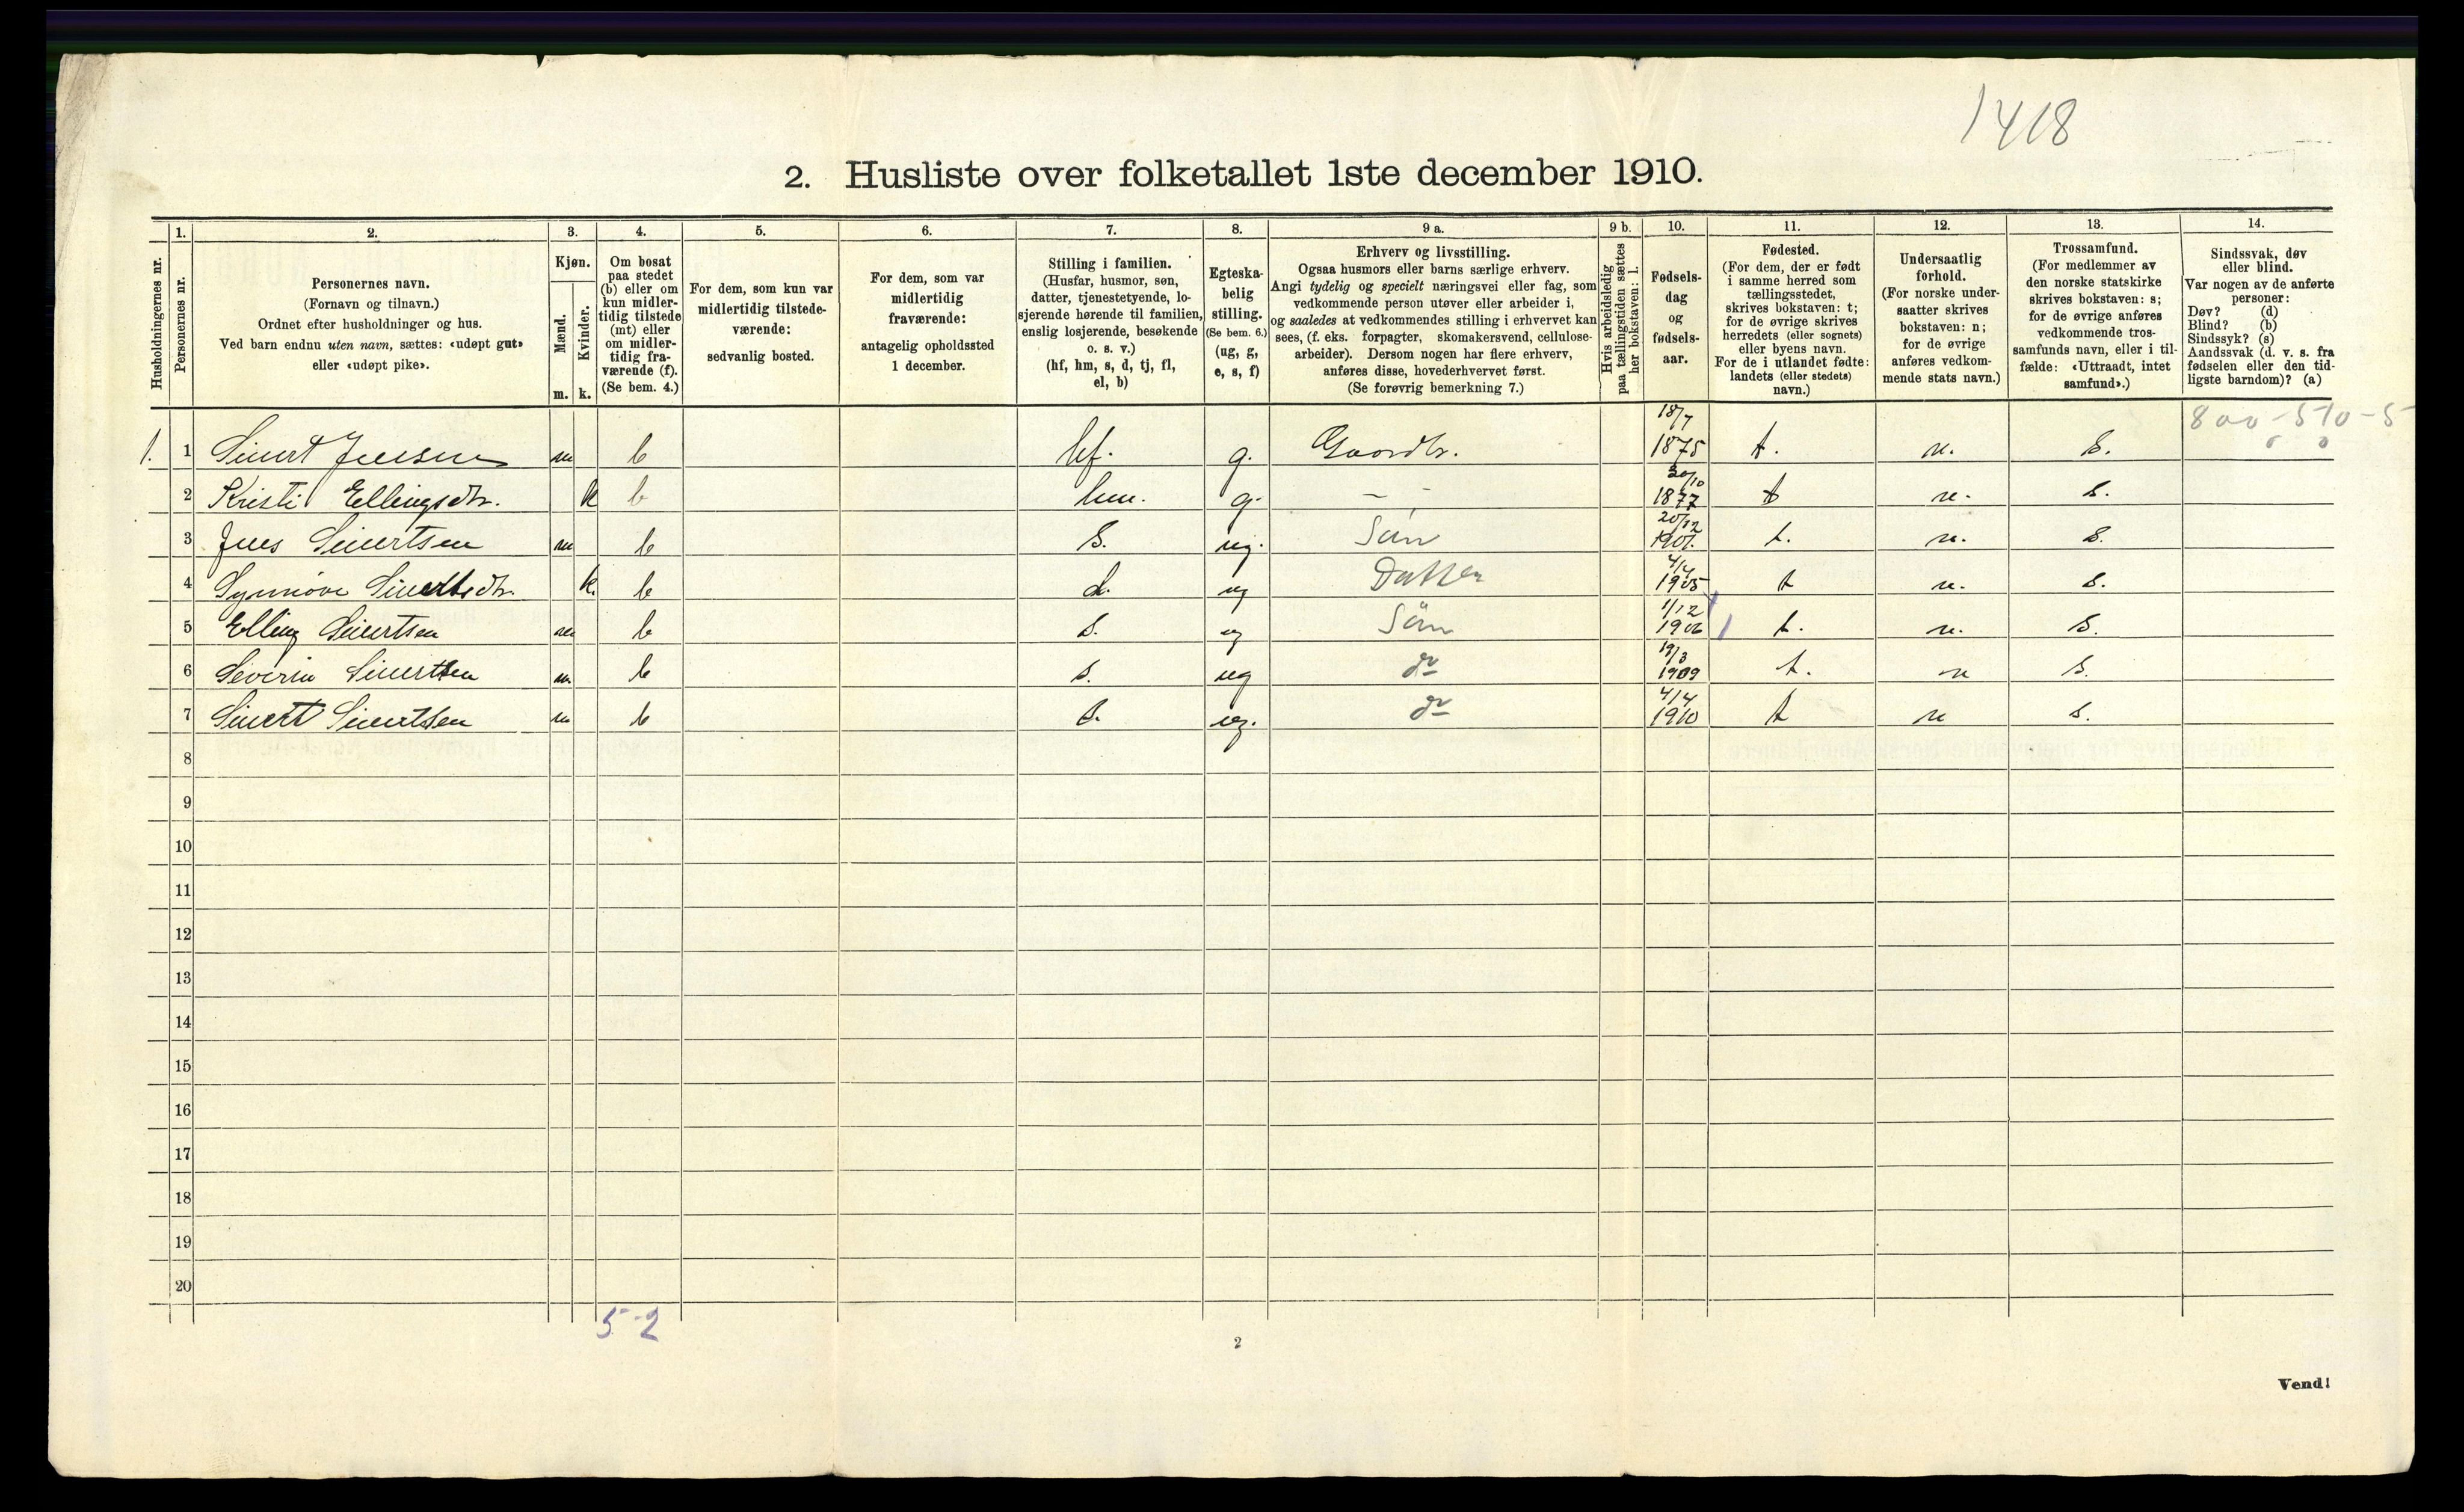 1418
2. Husliste over folketallet 1ste december 1910.
Husholdningernes nr.
1.
Personernes nr.
2.
Personernes navn.
(Fornavn og tilnavn.)
Ordnet efter husholdninger og hus.
Ved barn endnu uten navn, sættes: «udøpt gut»
eller «udøpt pike».
3.
Kjøn.
Mænd.
Kvinder.
m. k.
4.
Om bosat
paa stedet
(b) eller om
kun midler-
tidig tilstede
(mt) eller
om midler-
tidig fra-
værende (f).
(Se bem. 4.)
5.
For dem, som kun var
midlertidig tilstede-
værende:
sedvanlig bosted.
6.
For dem, som var
midlertidig
fraværende:
antagelig opholdssted
1 december.
7.
Stilling i familien.
(Husfar, husmor, søn,
datter, tjenestetyende, lo-
sjerende hørende til familien,
enslig losjerende, besøkende
o. s. v.)
(hf, hm, s, d, tj, fl,
el, b)
8.
Egteska-
belig
stilling.
(Se bem. 6.)
(ug, g,
e, s, f)
9 a.
Erhverv og livsstilling.
Ogsaa husmors eller barns særlige erhverv.
Angi tydelig og specielt næringsvei eller fag, som
vedkommende person utøver eller arbeider i,
og saaledes at vedkommendes stilling i erhvervet kan
sees, (f. eks. forpagter, skomakersvend, cellulose-
arbeider). Dersom nogen har flere erhverv,
anføres disse, hovederhvervet først.
(Se forøvrig bemerkning 7.)
9 b.
Hvis arbeidsledig
paa tællingstiden sættes
her bokstaven: l.
10.
Fødsels-
dag
og
fødsels-
aar.
11.
Fødested.
(For dem, der er født
i samme herred som
tællingsstedet,
skrives bokstaven: t;
for de øvrige skrives
herredets (eller sognets)
eller byens navn.
For de i utlandet fødte:
landets (eller stedets)
navn.)
12.
Undersaatlig
forhold.
(For norske under-
saatter skrives
bokstaven: n;
for de øvrige
anføres vedkom-
mende stats navn.)
13.
Trossamfund.
(For medlemmer av
den norske statskirke
skrives bokstaven: s;
for de øvrige anføres
vedkommende tros-
samfunds navn, eller i til-
fælde: «Uttraadt, intet
samfund».)
14.
Sindssvak, døv
eller blind.
Var nogen av de anførte
personer:
Døv? (d)
Blind? (b)
Sindssyk? (s)
Aandssvak (d. v. s. fra
fødselen eller den tid-
ligste barndom)? (a)
800-510-5
0 0
1. 1 Sivert Jensen m b hf. g. Gaardbr. 18/7 1875 t. n. s.
2 Kristi Ellingsdtr. k b hm. g. – – 30/10 1877 t n. s.
3 Jens Sivertsen m b s. ug. Sön 20/12 1901. t. n. s.
4 Synnøve Sivertsdtr. k. b d. ug Datter 4/4 1905 t n. s.
5 Elling Sivertsen m b s. ug Sön 1/12 1906 t. n. s.
6 Severin Sivertsen m. b s. ug do 19/3 1909 t. n s.
7 Sivert Sivertsen m b s. ug. do 4/4 1910 t n s.
8
9
10
11
12
13
14
15
16
17
18
19
20
5-2
2
Vend!